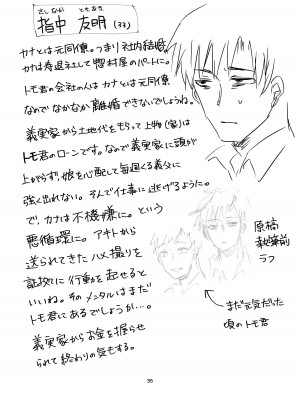 さしなか ともあき
指中 友明 (33)
カナとは元同僚。つまり社内結婚
カナは寿退社して惣村屋のパートに。
トモ君の会社の人はカナとは元同僚
なのでなかなか離婚できないでしょうね。
義実家から土地代をもらって上物(家)は
トモ君のローンです。なので義実家に頭が
上がらず、娘を心配して毎週くる義父に
強く出れない。そんで仕事に逃げるように。
で、カナは不機嫌に。という
悪循環に。アキトから
送られてきたハメ撮りを
証拠に行動を起せると
いいね。そのメンタルはまだ
トモ君にあるでしょうか…。
義実家からお金を握らせ
られて終わりの気もする。
原稿
執筆前
ラフ
まだ元気だった
頃のトモ君
35